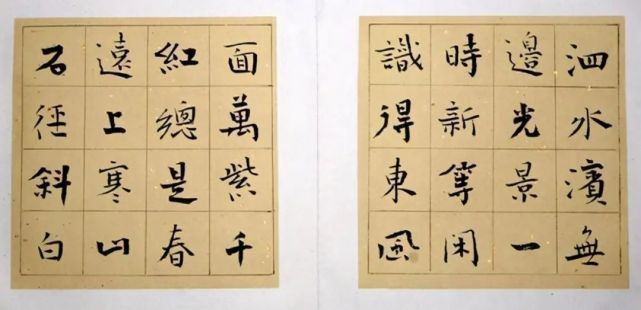 泗水濱無
邊光景一
時新等閑
識得東風
面萬紫千
紅總是春
遠上寒山
石徑斜白